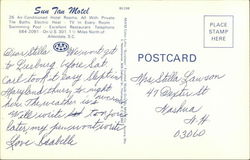 Sun Tan Motel
26 Air Conditioned Motel Rooms All With Private
Tile Baths Electric Heat TV in Every Room
Swimming Pool - Excellent Restaurant Telephone
584-2091 On U.S. 301, 1½ Miles North of
Allendale, S.C.
AAA
PLACE
STAMP
HERE
POSTCARD
Dear Stella We won't get
to Leesburg before Sat.
Carl took it easy slept in
Maryland thurs, to night
here. The weather is
Will write
later, my pen won't write
Love Isabelle
Mrs Stella Lawson
47 Dexter St
Nashua
N.H
03060